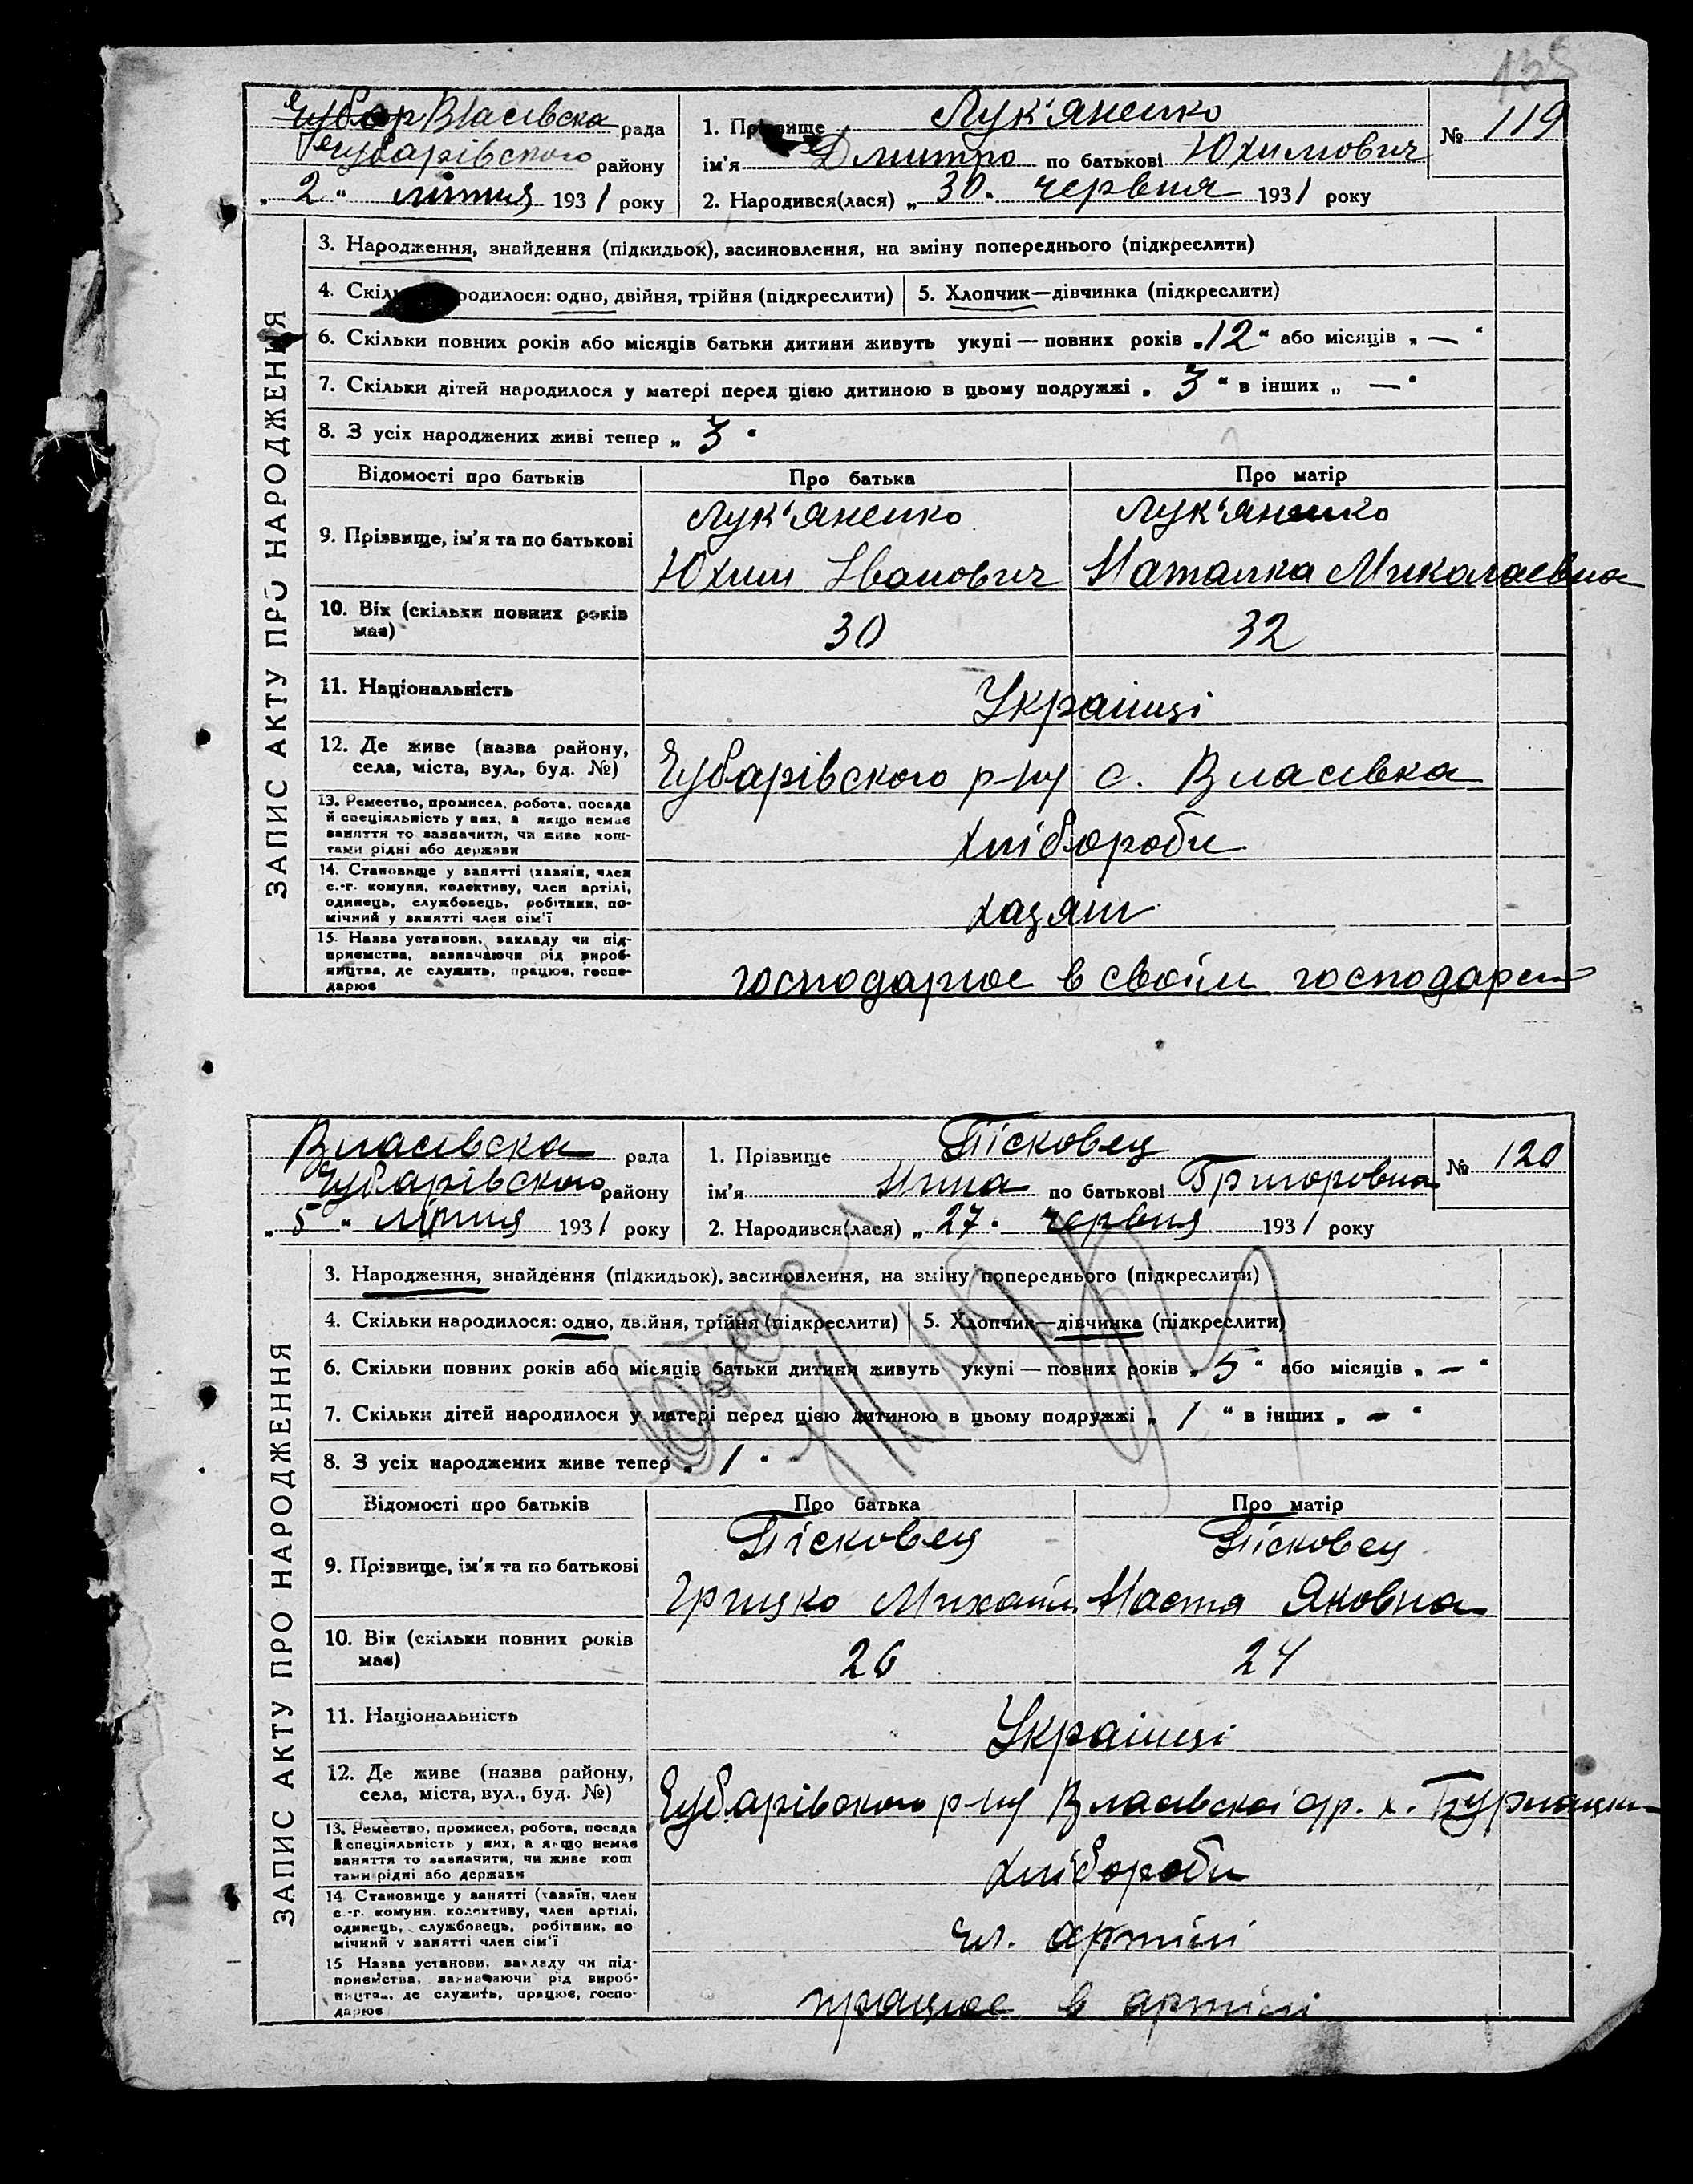 135
Власівска рада
Чубарівского району
„ 2 “ липня 1931 року
1. Прізвище Лук'яненко
ім'я Дмитро по батькові Юхимович
№ 119
2. Народився(лася) „ 30 “ червня 1931 року
ЗАПИС АКТУ ПРО НАРОДЖЕННЯ
3. Народження, знайдення (підкидьок), засиновлення, на зміну попереднього (підкреслити)
4. Скільки народилося: одно, двійня, трійня (підкреслити) 5. Хлопчик—дівчинка (підкреслити)
6. Скільки повних років або місяців батьки дитини живуть укупі — повних років „ 12 “ або місяців „ — “
7. Скільки дітей народилося у матері перед цією дитиною в цьому подружжі „ 3 “ в інших „ — “
8. З усіх народжених живі тепер „ 3 “
Відомості про батьків Про батька Про матір
9. Прізвище, ім'я та по батькові
Лук'яненко Лук'яненко
Юхим Іванович Наталка Миколаевна
10. Вік (скільки повних років
має)
30 32
11. Національність
Українці
12. Де живе (назва району,
села, міста, вул., буд. №)
Чубарівского р-ну с. Власівка
13. Ремество, промисел, робота, посада
й спеціяльність у них, а якщо немає
заняття то зазначити, чи живе кош-
тами рідні або держави
хлібороби
14. Становище у занятті (хазяїн, член
с.-г. комуни, колективу, член артілі,
одинець, службовець, робітник, по-
мічний у занятті член сім'ї
хазяїн
15. Назва установи, закладу чи під-
приємства, зазначаючи рід вироб-
ництва, де служить, працює, госпо-
дарює
господарює в своїм господарст
Власівска рада
Чубарівского району
„ 5 “ липня 1931 року
1. Прізвище Пісковец
ім'я Нина по батькові Григоровна
№ 120
2. Народився(лася) „ 27 “ червня 1931 року
ЗАПИС АКТУ ПРО НАРОДЖЕННЯ
3. Народження, знайдення (підкидьок), засиновлення, на зміну попереднього (підкреслити)
4. Скільки народилося: одно, двійня, трійня (підкреслити) 5. Хлопчик—дівчинка (підкреслити)
6. Скільки повних років або місяців батьки дитини живуть укупі — повних років „ 5 “ або місяців „ — “
7. Скільки дітей народилося у матері перед цією дитиною в цьому подружжі „ 1 “ в інших „ — “
8. З усіх народжених живе тепер „ 1 “
Відомості про батьків Про батька Про матір
9. Прізвище, ім'я та по батькові
Пісковец Пісковец
Грицко Михайл. Настя Яковна
10. Вік (скільки повних років
має)
26 24
11. Національність
Українці
12. Де живе (назва району,
села, міста, вул., буд. №)
Чубарівского р-ну Власівскої с/р. х. Бурлацки
13. Ремество, промисел, робота, посада
й спеціяльність у них, а якщо немає
заняття то зазначити, чи живе кош
тами рідні або держави
хлібороби
14. Становище у занятті (хазяїн, член
с.-г. комуни, колективу, член артілі,
одинець, службовець, робітник, по
мічний у занятті член сім'ї
чл. артілі
15 Назва установи, закладу чи під-
приємства, зазначаючи рід вироб-
ництва, де служить, працює, госпо-
дарює
працює в артілі